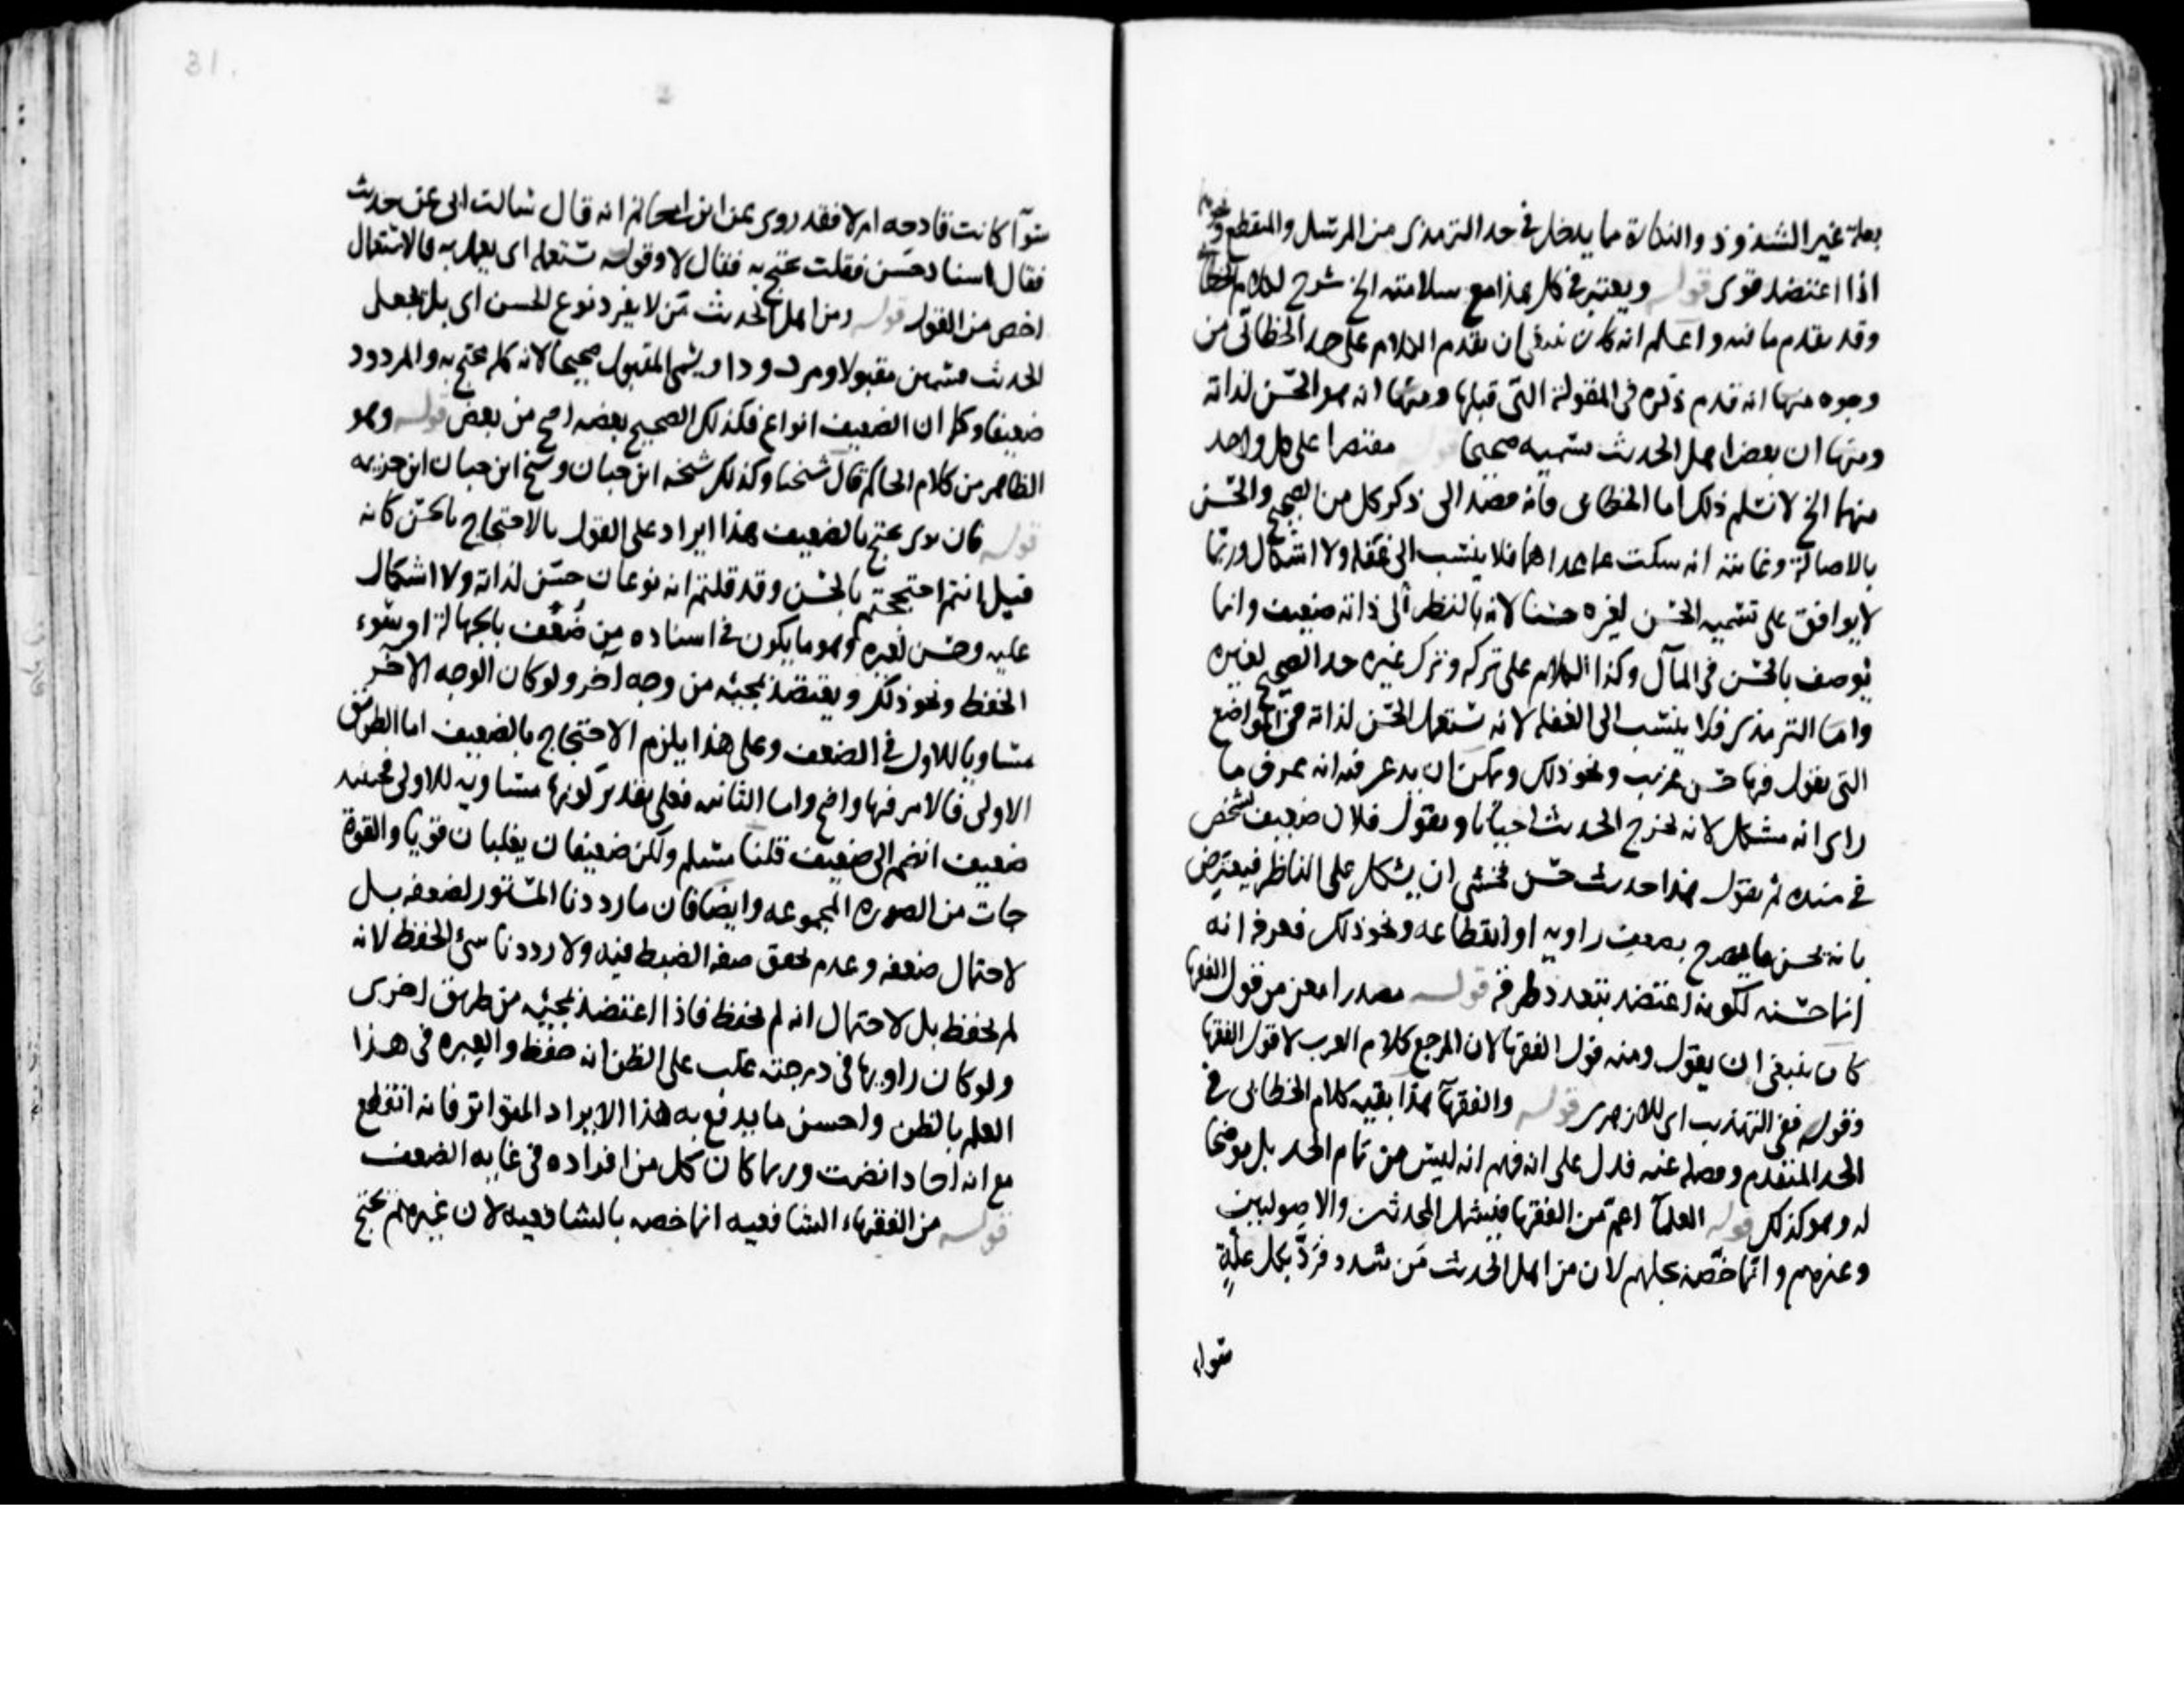 بعلة غير الشذوذ والنكارة مما يدخل في حد الترمذي من المرسل والمنقطع ونحوهما
اذا اعتضد قوى قوله ويعتبر في كل هذا مع سلامته الخ شرح لكلام الخطابي
وقد تقدم ما فيه واعلم انه كان ينبغي ان يقدم الكلام على حد الخطابي من
وجوه منها انه قدم ذكره في المقولة التي قبلها ومنها انه هو الحسن لذاته
ومنها ان بعض اهل الحديث يسميه صحيحا قوله مقتصرا على كل واحد
منهما الخ لا نسلم ذلك اما الخطابي فانه قصد الى ذكر كل من الصحيح والحسن
بالاصالة وغايته انه سكت عما عداهما فلا ينسب الى غفلة ولا اشكال وربما
لا يوافق على تسميه الحسن لغيره حسنا لانه بالنظر الى ذاته ضعيف وانما
يوصف بالحسن في المآل وكذا الكلام على تركه وترك غيره حد الصحيح لغيره
واما الترمذي فلا ينسب الى الغفله لانه يستعمل الحسن لذاته في المواضع
التي يقول فيها حسن غريب ونحو ذلك ويمكن ان يدعى فيه انه عرف ما
راى انه مشكل لانه يخرج الحديث احيانا ويقول فلان ضعيف لشخص
في سنده ثم يقول هذا حديث حسن فخشي ان يشكل على الناظر فيعترض
بانه يحسن ما يصرح بضعف راويه او انقطاعه ونحو ذلك فعرفه انه
انما حسنه لكونه اعتضد بتعدد طرقه قوله مصدرا معز من قول الفقها
كان ينبغي ان يقول ومنه قول الفقها لان المرجع كلام العرب لا قول الفقها
وقوله ففي التهذيب اى للازهرى قوله والفقهآ هذا بقيه كلام الخطابي في
الحد المتقدم وفصله عنه فدل على انه فهم انه ليس من تمام الحد بل موضحا
له وهو كذلك قوله العلمآ اعم من الفقها فيشمل المحدثين والاصوليين
وغيرهم وانما خصه بجلهم لان من اهل الحديث من شدد فرد بكل علة
سواء
31.
سوآ كانت قادحه ام لا فقد روى عن ابن ابى حاتم انه قال سالت ابي عن حديث
فقال اسناد حسن فقلت يحتج به فقال لا وقوله يستعمله اى يعمل به فالاستعمال
اخص من القول قوله ومن اهل الحديث من لا يفرد نوع الحسن اى بل يجعل
الحديث قسمين مقبولا ومردودا ويسمى المقبول صحيحا لانه كله يحتج به والمردود
ضعيفا وكما ان الضعيف انواع فكذلك الصحيح بعضه اصح من بعض قوله وهو
الظاهر من كلام الحاكم قال شيخنا وكذلك شيخه ابن حبان وشيخ ابن حبان ابن خزيمه
قوله فان يرى يحتج بالضعيف هذا ايراد على القول بالاحتجاج بالحسن كانه
قيل انتم احتججتم بالحسن وقد قلتم انه نوعان حسن لذاته ولا اشكال
عليه وحسن لغيره وهو ما يكون في اسناده من ضعف بالجهالة او سوء
الحفظ ونحو ذلك ويعتضد بمجيئه من وجه آخر ولو كان الوجه الآخر
مساويا للاول في الضعف وعلى هذا يلزم الاحتجاج بالضعيف اما الطريق
الاولى فالامر فيها واضح واما الثانيه فعلى تقدير كونها مساويه للاولى فحينئذ
ضعيف انضم الى ضعيف قلنا مسلم ولكن ضعيفان يغلبان قويا والقوة
جات من الصوره المجموعه وايضا فان ما رددنا المستور لضعفه بل
لاحتمال ضعفه وعدم تحقق صفه الضبط فيه ولا رددنا سئ الحفظ لانه
لم يحفظ بل لاحتمال انه لم يحفظ فاذا اعتضد بمجيئه من طريق اخرى
ولو كان راويها في درجته غلب على الظن انه حفظ والعبره في هذا
العلم بالظن واحسن ما يدفع به هذا الايراد المتواتر فانه انقطع
مع انه احاد انضمت وربما كان كل من افراده في غايه الضعف
قوله من الفقهاء الشافعيه انما خصه بالشافعيه لان غيرهم يحتج